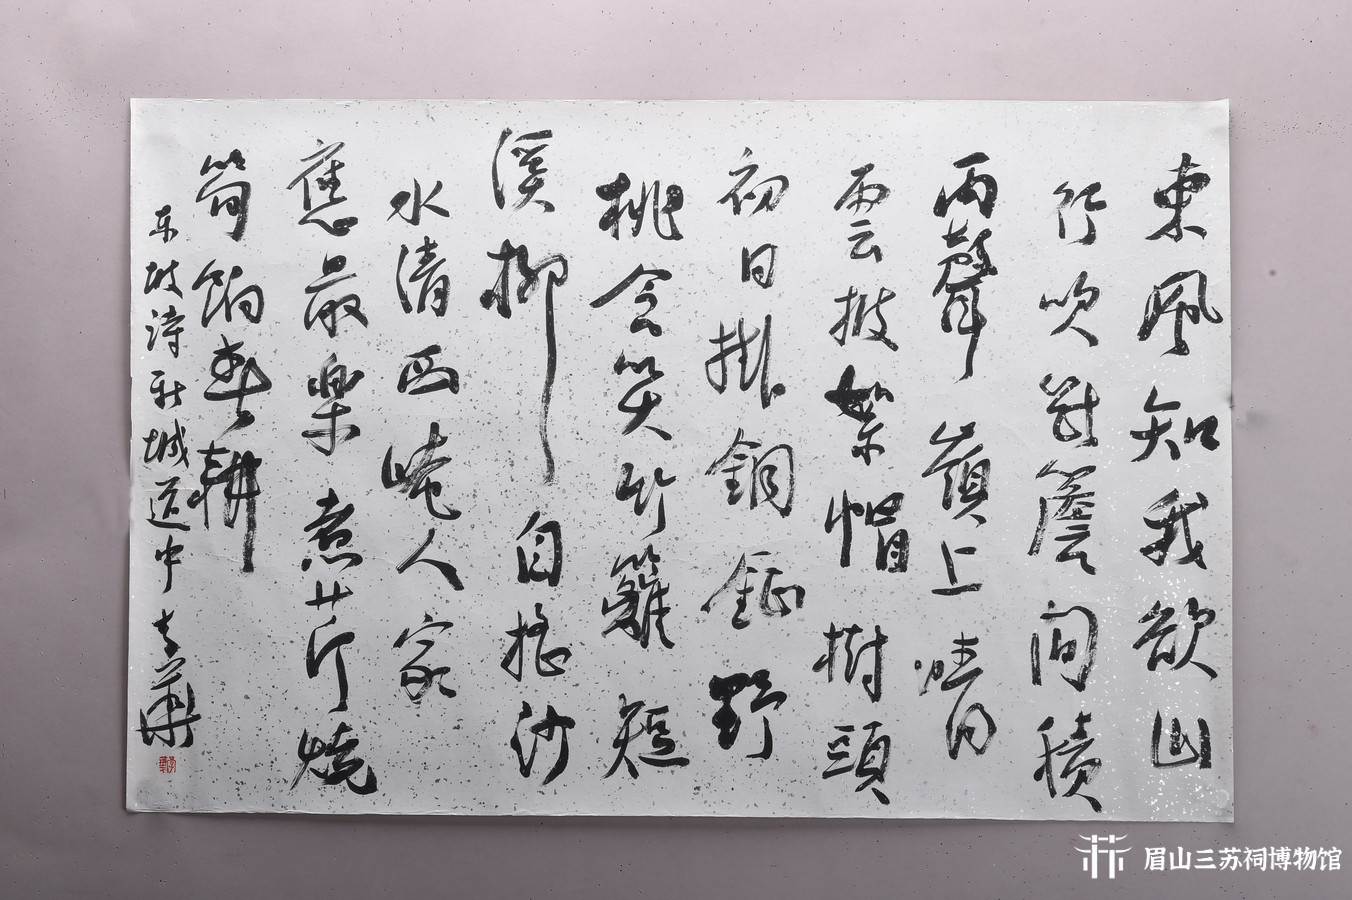 東風知我欲山
行吹斷簷間積
雨聲嶺上晴
雲披絮帽樹頭
初日掛銅鉦野
桃含笑竹籬短
溪柳自搖沙
水清西崦人家
應最樂煮芹燒
筍餉春耕
東坡詩新城道中
眉山三苏祠博物馆